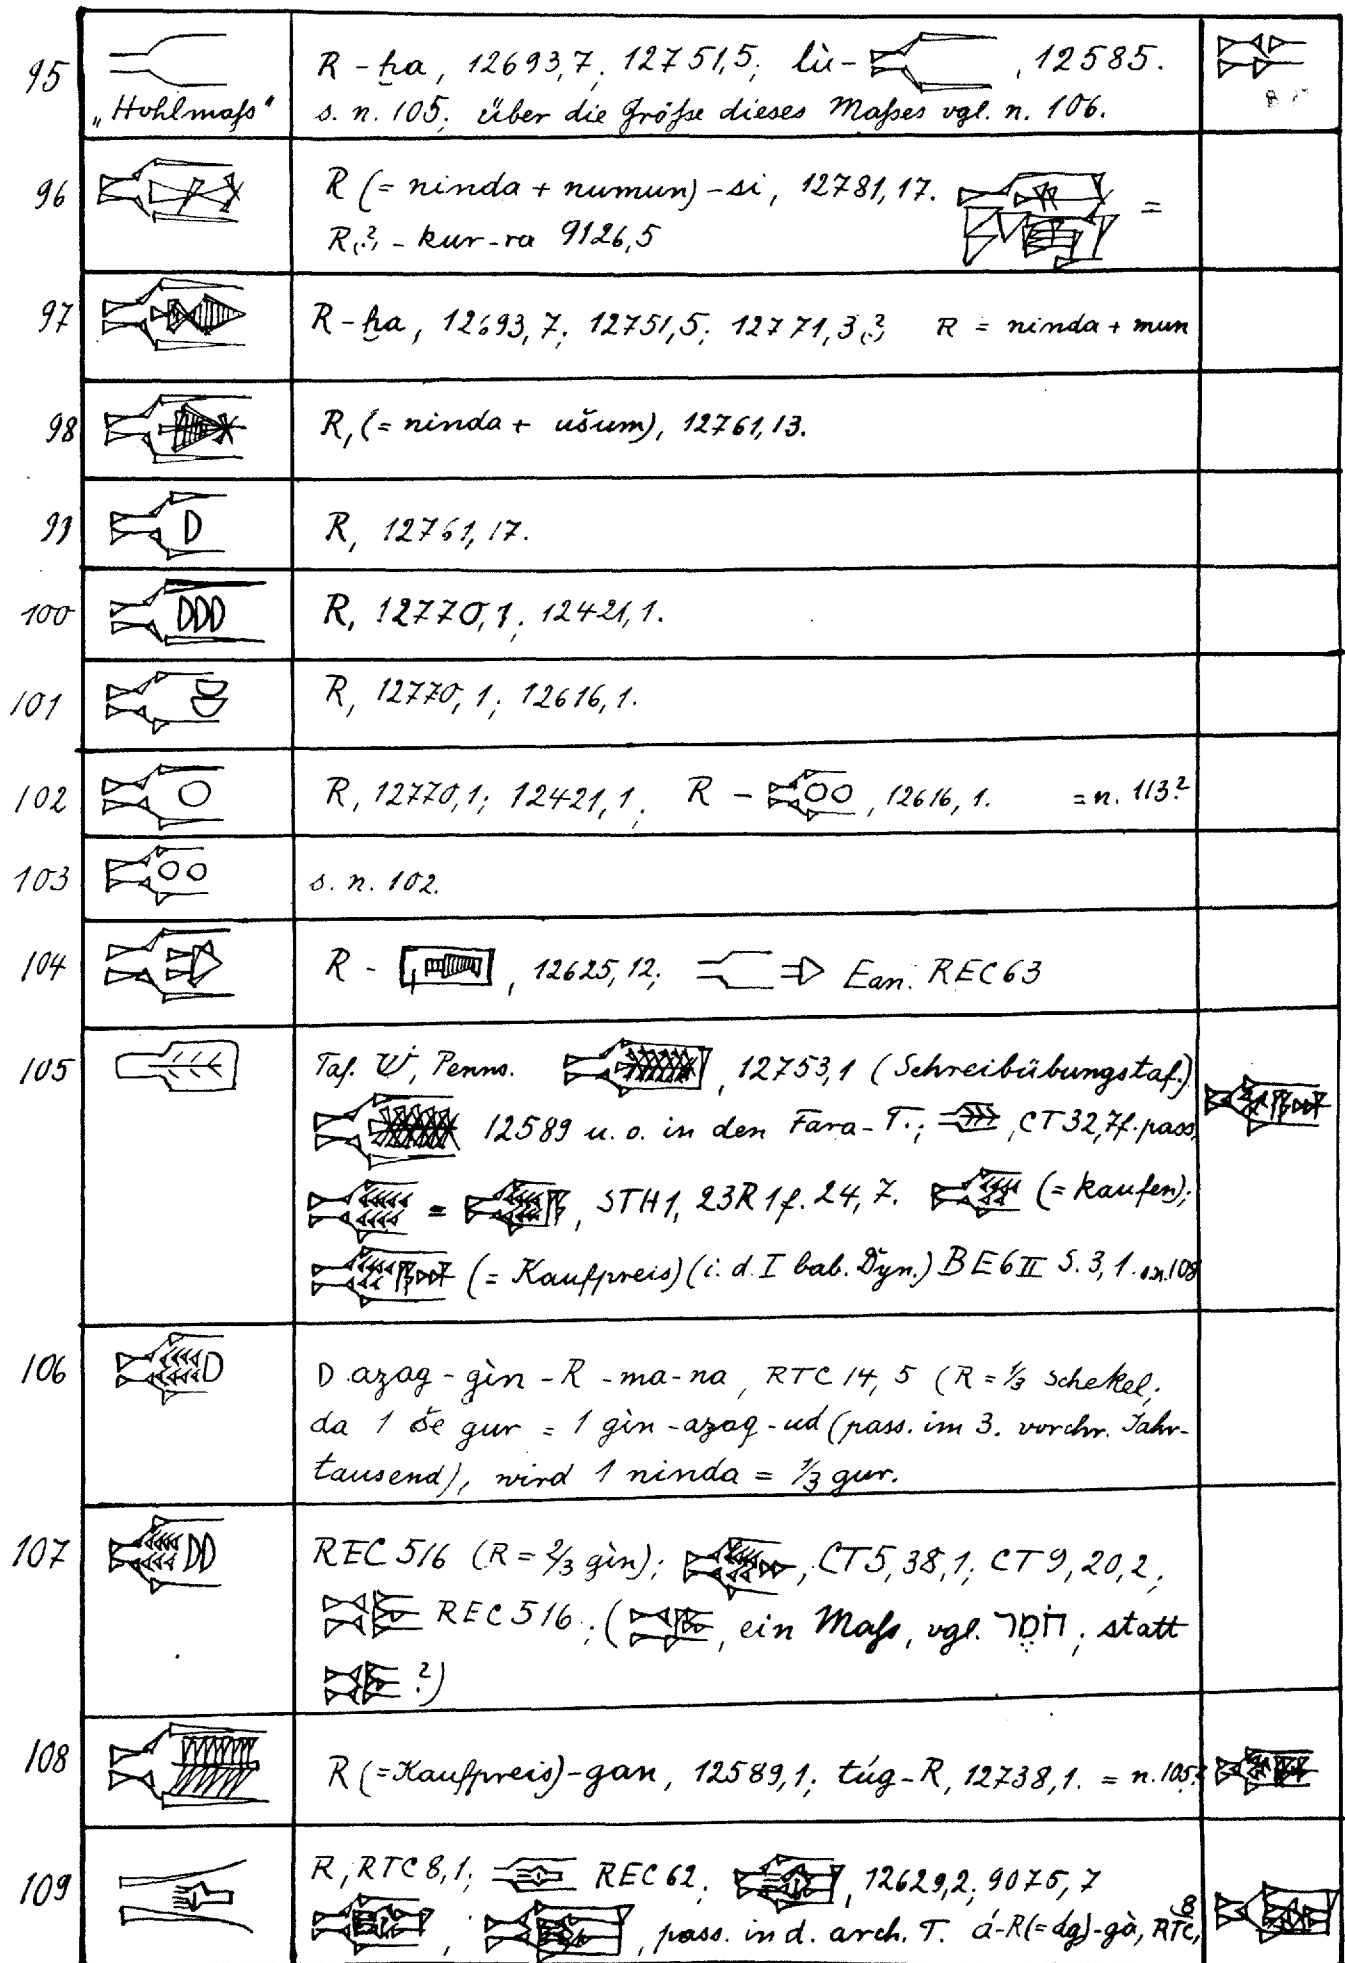 95 R-ḫa, 12693,7; 12751,5; lù- , 12585.
„Hohlmaß“ s. n. 105; über die Größe dieses Maßes vgl. n. 106.
96 R (= ninda + numun)-si, 12781,17. =
R(?)-kur-ra 9126,5
97 R-ḫa, 12693,7; 12751,5; 12771,3(?) R = ninda + mun
98 R, (= ninda + ušum), 12761,13.
99 R, 12761,17.
100 R, 12770,1; 12421,1.
101 R, 12770,1; 12616,1.
102 R, 12770,1; 12421,1; R - , 12616,1. = n. 113?
103 s. n. 102.
104 R - , 12625,12; Ean. REC 63
105 Taf. Penns. , 12753,1 (Schreibübungstaf.)
12589 u. o. in den Fara-T.; , CT 32,7f. pass.
= , STH 1, 23 R 1 f. 24,7. (= kaufen);
(= Kaufpreis) (i. d. I bab. Dyn.) BE 6 II S. 3,1. s. n. 108
106 D azag-gìn-R-ma-na, RTC 14,5 (R = 1/3 Schekel;
da 1 še gur = 1 gìn-azag-ud (pass. im 3. vorchr. Jahr-
tausend), wird 1 ninda = 1/3 gur.
107 REC 516 (R = 2/3 gìn); , CT 5,38,1; CT 9,20,2;
REC 516; ( , ein Maß, vgl. ; statt
?)
108 R (= Kaufpreis)-gan, 12589,1; túg-R, 12738,1. = n. 105?
109 R, RTC 8,1; REC 62; , 12629,2; 9075,7
, , pass. in d. arch. T. á-R(=dg)-gà, RTC, 8